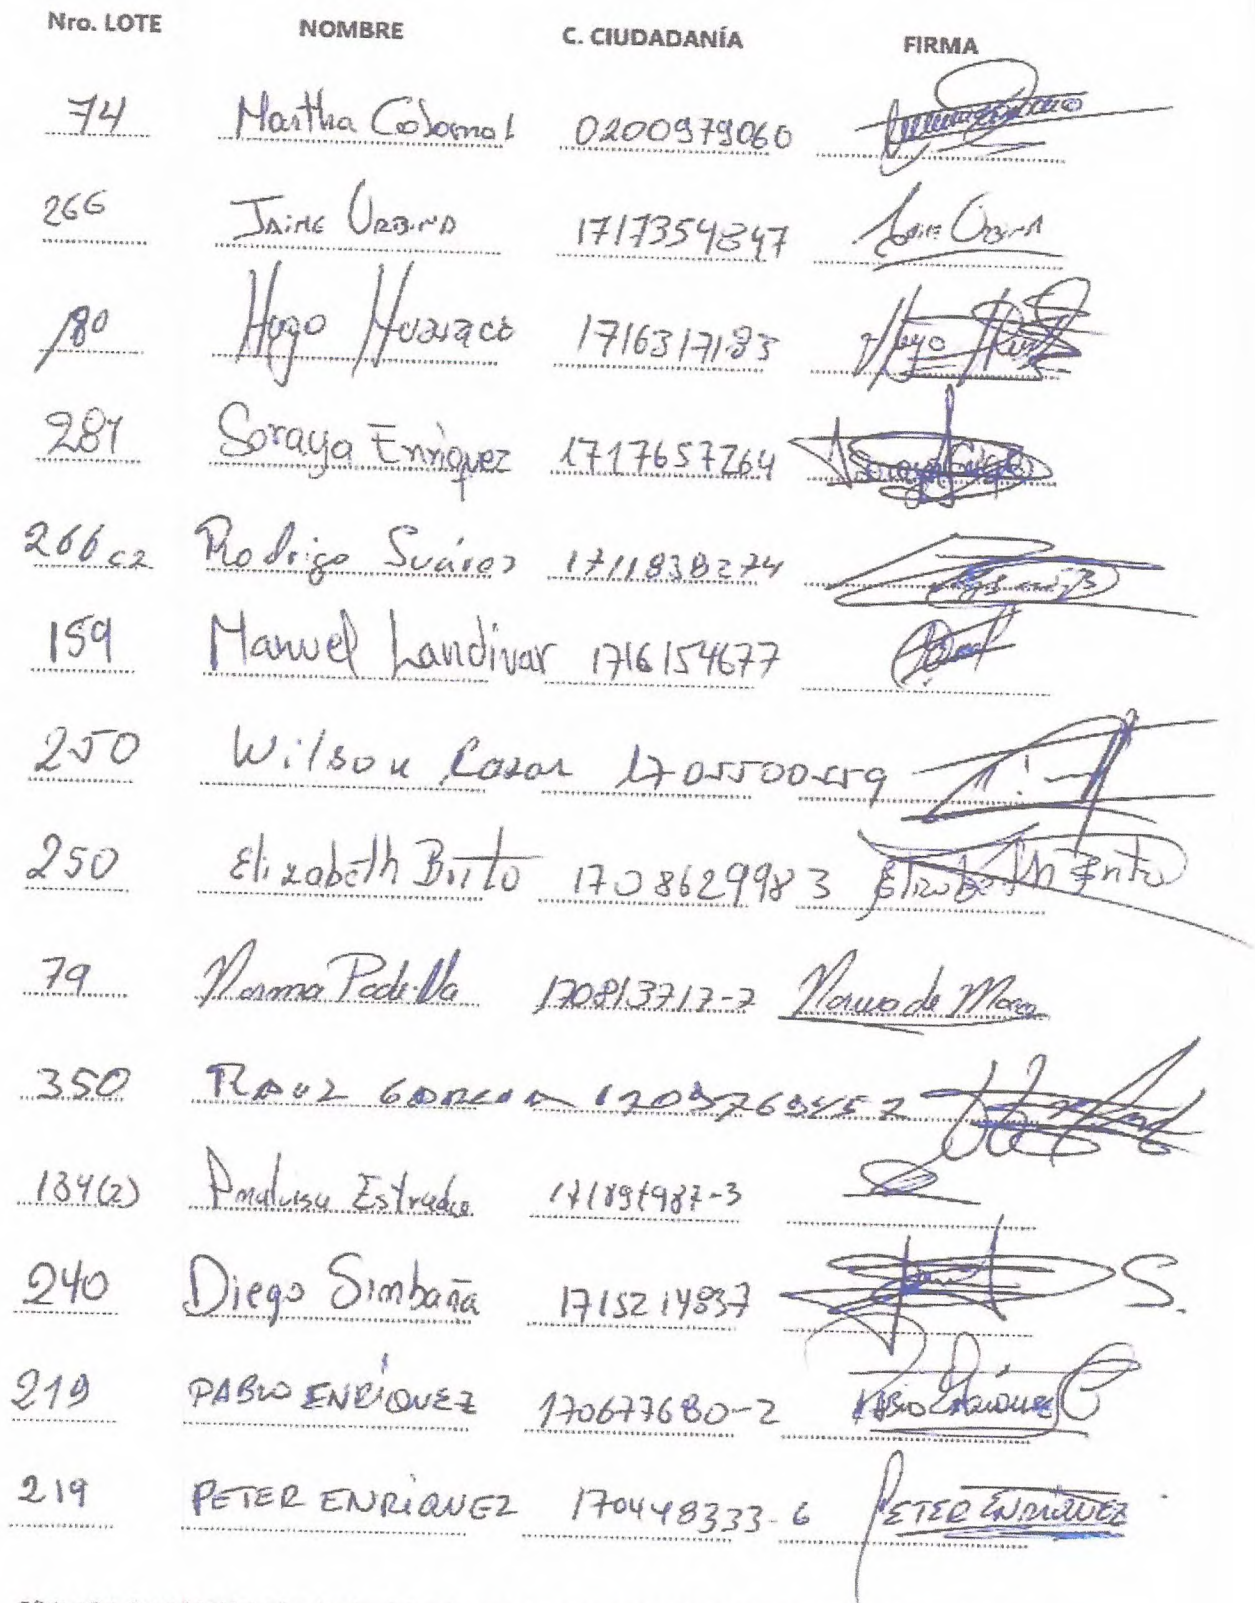 Nro. LOTE NOMBRE C. CIUDADANÍA FIRMA
74 Martha 0200979060
266 JAIME URBINA 1717354847 Jaime Urbina
180 Hugo Huaraco 1716317183 Hugo
281 Soraya Enriquez 1717657264
266 c2 Rodrigo Suárez 1711838274
159 Manuel Landivar 1716154677
250 Wilson 1705500559
250 Elizabeth Brito 1708629983 Elizabeth Brito
79 Norma Padilla 170813717-7 Norma de
350 RAUL GARCIA
134(2) Analuisa Estrada 171897987-3
240 Diego Simbaña 1715214837 S.
219 PABLO ENRÍQUEZ 170677680-2 PABLO ENRIQUEZ
219 PETER ENRIQUEZ 170448333-6 PETER ENRIQUEZ